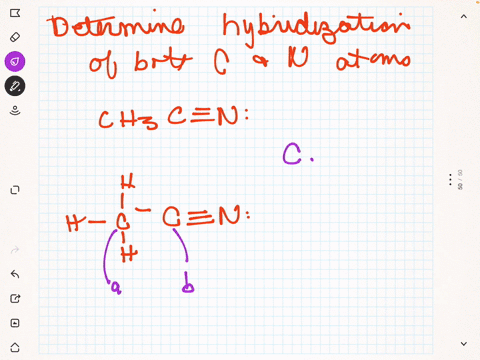 Determine hybridization
of both C & N atoms
CH3 C≡N:
C.
H
H–C–C≡N:
H
a b
50 / 50